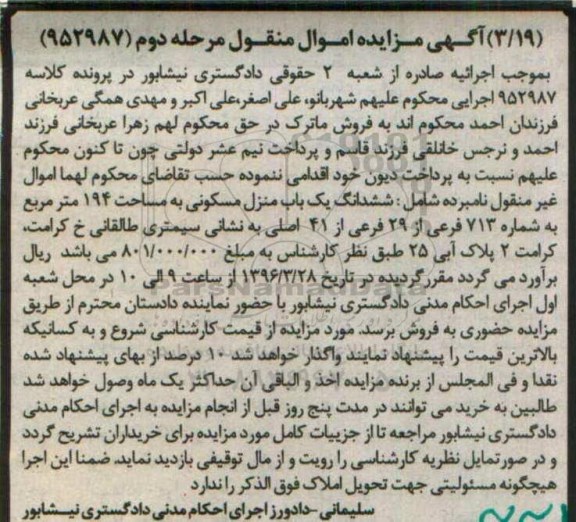 (۳/۱۹)آگهی مزایده اموال منقول مرحله دوم (۹۵۲۹۸۷)
بموجب اجرائیه صادره از شعبه ۲ حقوقی دادگستری نیشابور در پرونده کلاسه
۹۵۲۹۸۷ اجرایی محکوم علیهم شهربانو، علی اصغر،علی اکبر و مهدی همگی عربخانی
فرزندان احمد محکوم اند به فروش ماترک در حق محکوم لهم زهرا عربخانی فرزند
احمد و نرجس خانلقی فرزند قاسم و پرداخت نیم عشر دولتی چون تا کنون محکوم
علیهم نسبت به پرداخت دیون خود اقدامی ننموده حسب تقاضای محکوم لهما اموال
غیر منقول نامبرده شامل : ششدانگ یک باب منزل مسکونی به مساحت ۱۹۴ متر مربع
به شماره ۷۱۳ فرعی از ۲۹ فرعی از ۴۱ اصلی به نشانی سیمتری طالقانی خ کرامت،
کرامت ۲ پلاک آبی ۲۵ طبق نظر کارشناس به مبلغ ۸۰۱/۰۰۰/۰۰۰ می باشد ریال
برآورد می گردد مقرر گردیده در تاریخ ۱۳۹۶/۳/۲۸ از ساعت ۹ الی ۱۰ در محل شعبه
اول اجرای احکام مدنی دادگستری نیشابور با حضور نماینده دادستان محترم از طریق
مزایده حضوری به فروش برسد. مورد مزایده از قیمت کارشناسی شروع و به کسانیکه
بالاترین قیمت را پیشنهاد نمایند واگذار خواهد شد ۱۰ درصد از بهای پیشنهاد شده
نقدا و فی المجلس از برنده مزایده اخذ و الباقی آن حداکثر یک ماه وصول خواهد شد
طالبین به خرید می توانند در مدت پنج روز قبل از انجام مزایده به اجرای احکام مدنی
دادگستری نیشابور مراجعه تا از جزییات کامل مورد مزایده برای خریداران تشریح گردد
و در صورتمایل نظریه کارشناسی را رویت و از مال توقیفی بازدید نماید. ضمنا این اجرا
هیچگونه مسئولیتی جهت تحویل املاک فوق الذکر را ندارد
سلیمانی -دادورز اجرای احکام مدنی دادگستری نیشابور
ParsNamadData